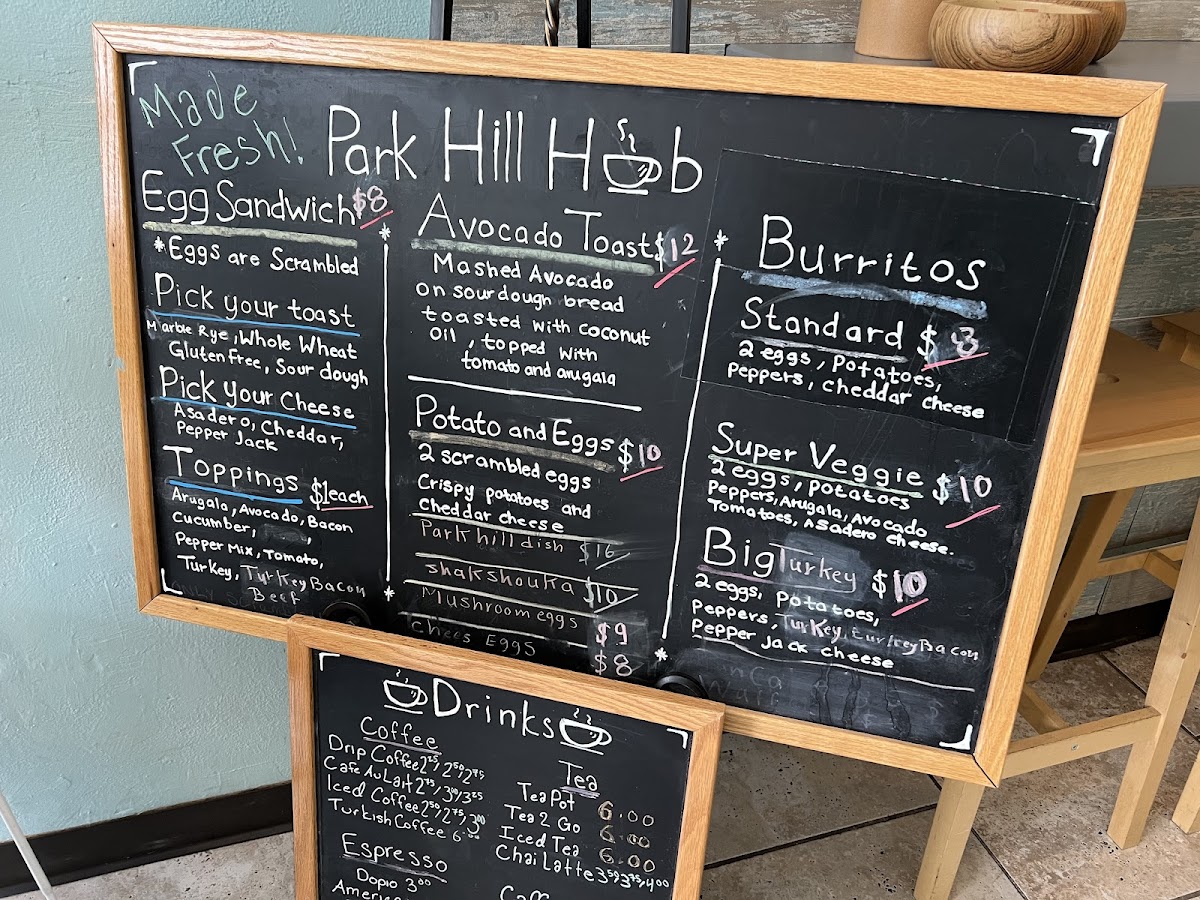 Made
Fresh!
Park Hill Hub
Egg Sandwich $8
*Eggs are Scrambled
Pick your toast
Marble Rye, Whole Wheat
Gluten free, Sour dough
Pick Your Cheese
Asadero, Cheddar,
Pepper Jack
Toppings $1each
Arugala, Avocado, Bacon
Cucumber,
Pepper Mix, Tomato,
Turkey, Turkey Bacon
Beef
Avocado Toast $12
Mashed Avocado
on sourdough bread
toasted with coconut
oil, topped with
tomato and arugala
Potato and Eggs $10
2 scrambled eggs
Crispy potatoes and
Cheddar cheese
Park hill dish $16
shakshouka $10
Mushroom eggs $9
chees EGGS $8
Burritos
Standard $8
2 eggs, Potatoes,
Peppers, cheddar cheese
Super Veggie $10
2 eggs, potatoes
Peppers, Arugala, Avocado
Tomatoes, Asadero cheese.
Big Turkey $10
2 eggs, potatoes,
Peppers, Turkey, turkey Bacon
Pepper Jack cheese
Drinks
Coffee
Drip Coffee 2.25, 2.50, 2.75
Cafe Au Lait 2.75, 3.00, 3.25
Iced Coffee 2.50, 2.75, 3.00
Turkish Coffee 6.00
Espresso
Dopio 3.00
Tea
Tea Pot 6.00
Tea 2 Go 6.00
Iced Tea 6.00
Chai Latte 3.50, 3.75, 4.00